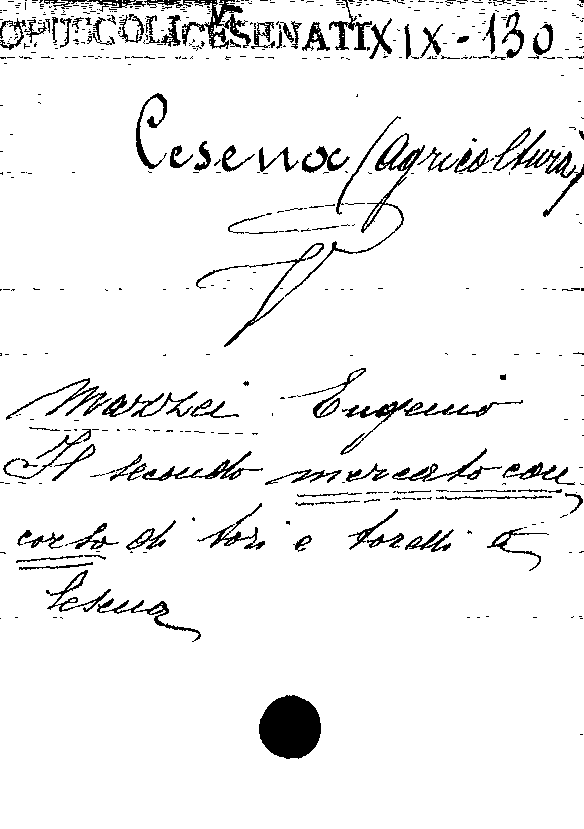 OPUSCOLI CESENATI XIX - 130
Cesena (Agricoltura)
Mazzei Eugenio
Il secondo mercato con
corso di tori e torelli a
Cesena